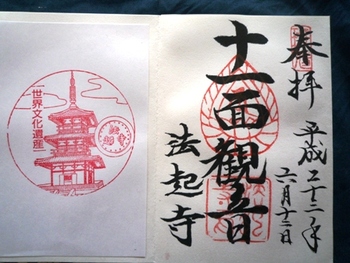 奉拝
平成二十二年
六月十二日
十一面観音
法起寺
世界文化遺産